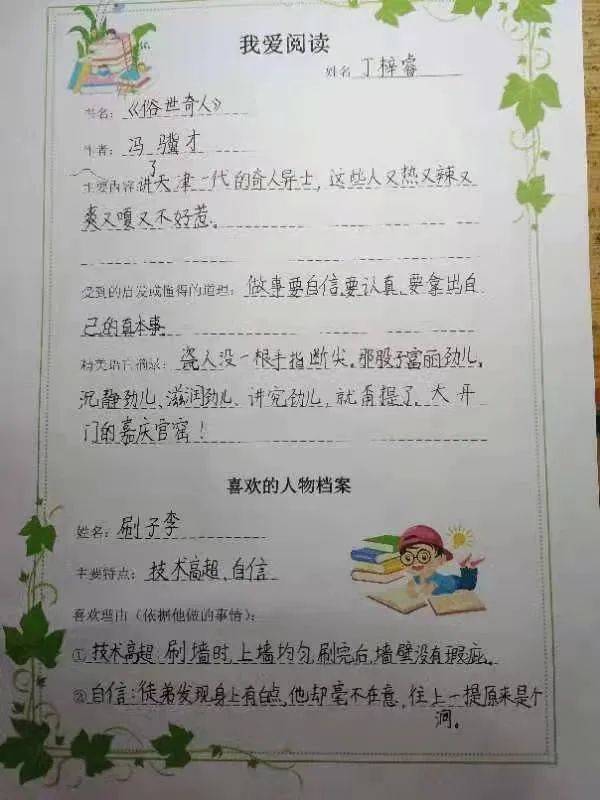 我爱阅读
姓名 丁梓睿
书名:《俗世奇人》
作者: 冯骥才
主要内容:讲了天津一代的奇人异士,这些人又热又辣又
爽又嘎又不好惹。
受到的启发或懂得的道理: 做事要自信,要认真,要拿出自
己的真本事
精美语句摘录: 瓷人没一根手指断尖。那股子富丽劲儿,
沉静劲儿、滋润劲儿、讲究劲儿,就甭提了。大开
门的嘉庆官窑!
喜欢的人物档案
姓名: 刷子李
主要特点: 技术高超,自信
喜欢理由(依据他做的事情):
①技术高超:刷墙时,上墙均匀,刷完后,墙壁没有瑕疵。
②自信:徒弟发现身上有白点,他却毫不在意,往上一提原来是个
洞。